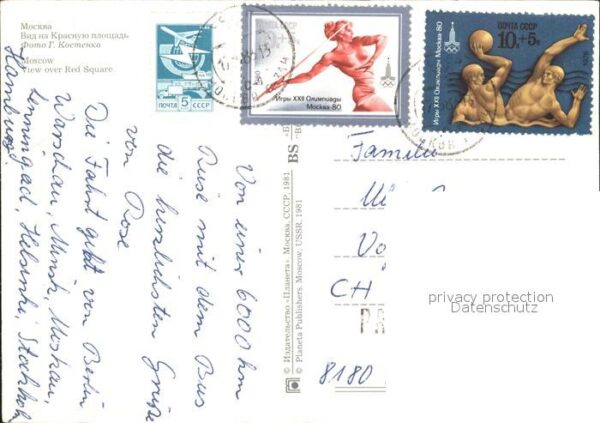 Москва
Вид на Красную площадь
Фото Г. Костенко
Moscow
View over Red Square
ПОЧТА 5 СССР
ПОЧТА СССР
Игры XXII Олимпиады
Москва·80
ПОЧТА СССР
10к+5к
Игры XXII Олимпиады Москва 80
1978
Von einer 6000 km
Reise mit dem Bus
die herzlichsten Grüße
von Rose
Die Fahrt geht von Berlin
Warschau, Minsk, Moskau,
Leningrad, Helsinki, Stockholm
Hamburg
BS
© Издательство «Планета» Москва, СССР, 1981
© Planeta Publishers, Moscow, USSR, 1981
Familie
CH
8180
privacy protection
Datenschutz